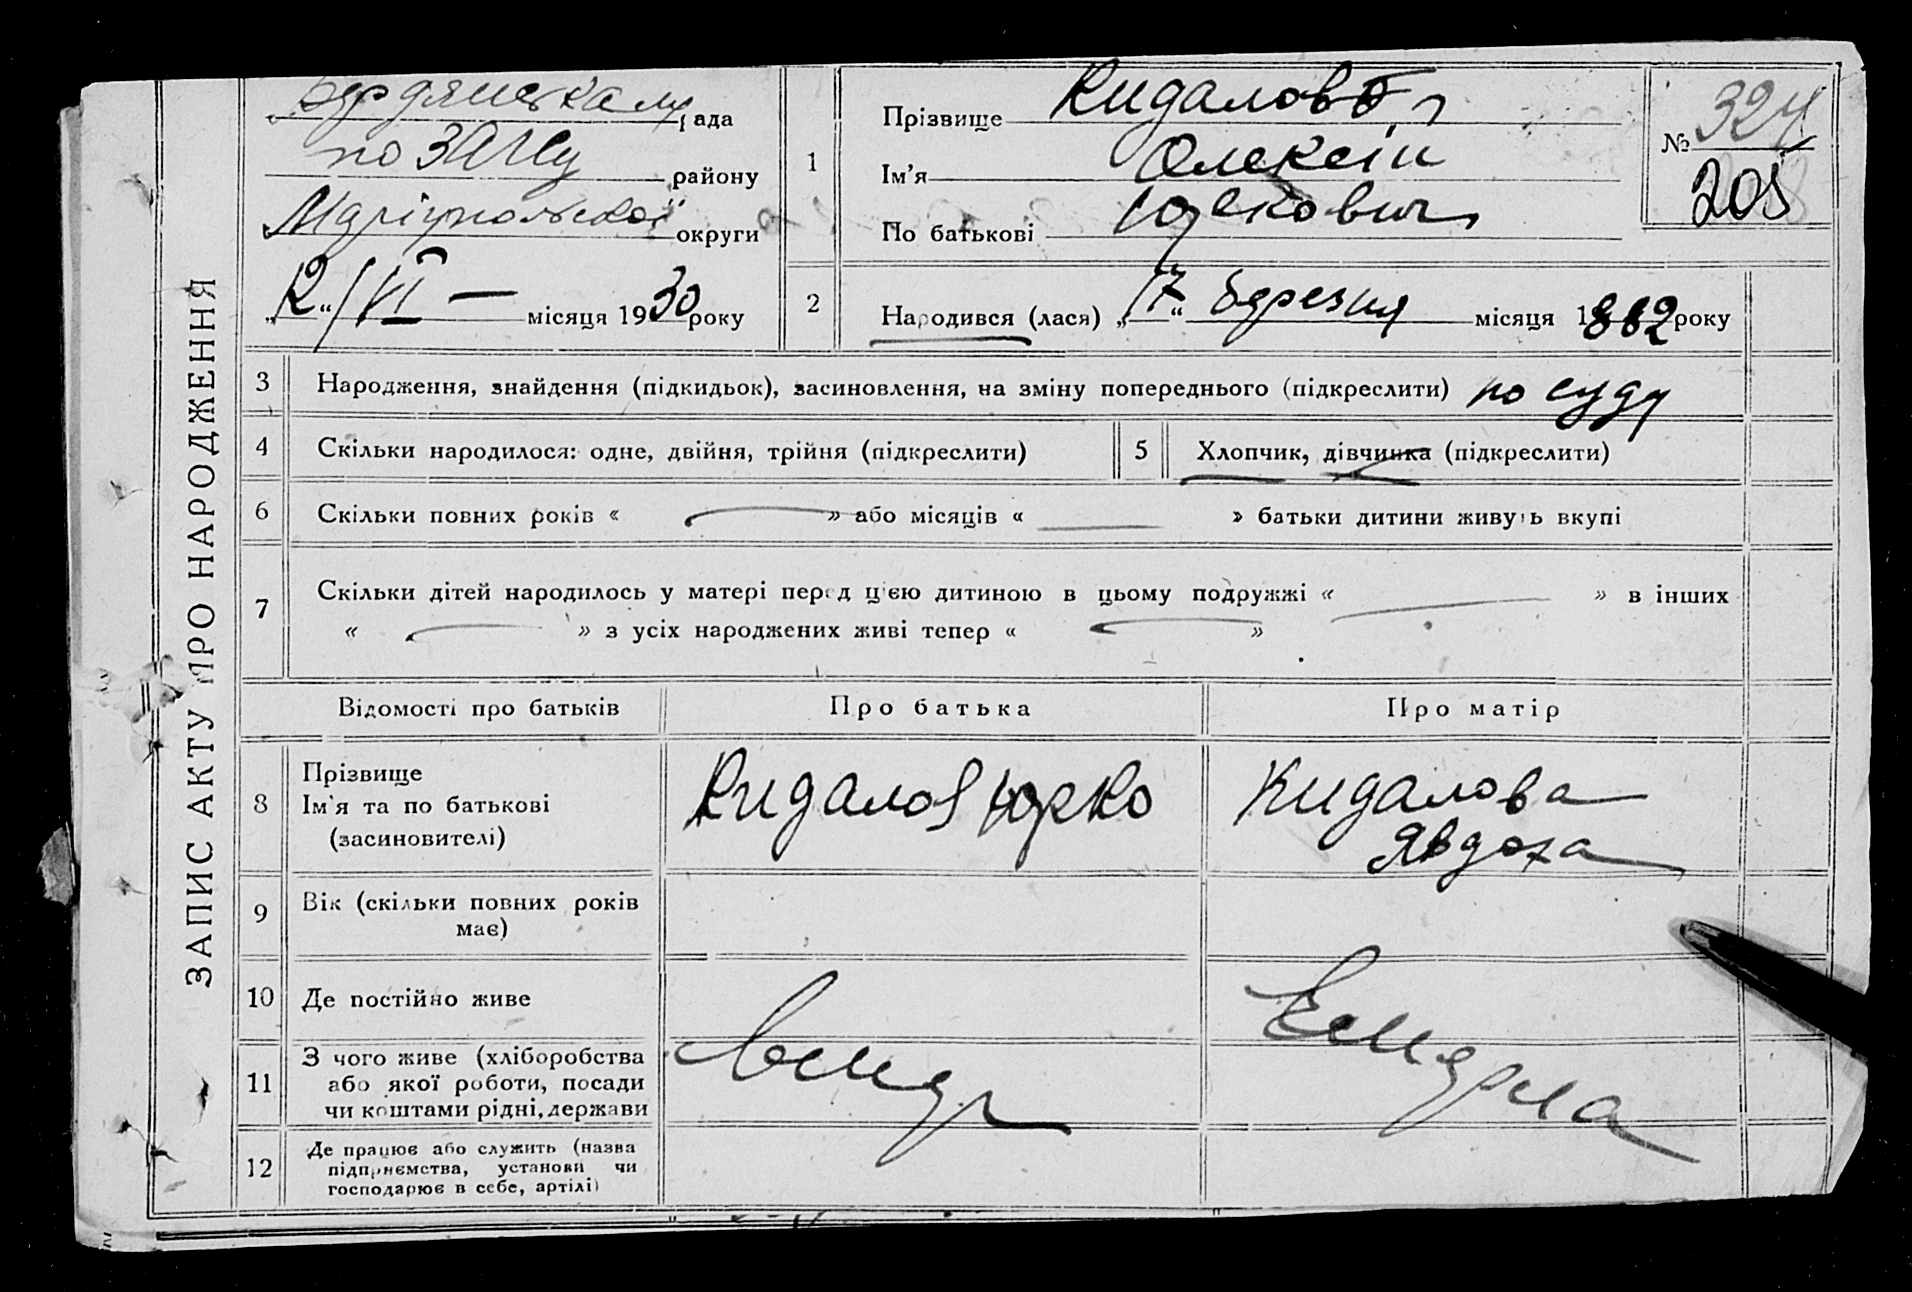 ЗАПИС АКТУ ПРО НАРОДЖЕННЯ
рада
по ЗАГСу району
Маріупольської округи
„12“ VI — місяця 1930 року
1
Прізвище Кидалов
Ім'я Олексій
По батькові Юркович
№ 324
205
2
Народився (лася) „17“ березня місяця 1882 року
3 Народження, знайдення (підкидьок), засиновлення, на зміну попереднього (підкреслити) по суду
4 Скільки народилося: одне, двійня, трійня (підкреслити) 5 Хлопчик, дівчинка (підкреслити)
6 Скільки повних років « » або місяців « » батьки дитини живуть вкупі
7 Скільки дітей народилось у матері перед цією дитиною в цьому подружжі « » в інших
« » з усіх народжених живі тепер « »
Відомості про батьків Про батька Про матір
8 Прізвище
Ім'я та по батькові
(засиновителі)
Кидалов Юрко
Кидалова
Явдоха
9 Вік (скільки повних років
має)
10 Де постійно живе
11 З чого живе (хліборобства
або якої роботи, посади
чи коштами рідні, держави
12 Де працює або служить (назва
підприємства, установи чи
господарює в себе, артілі)